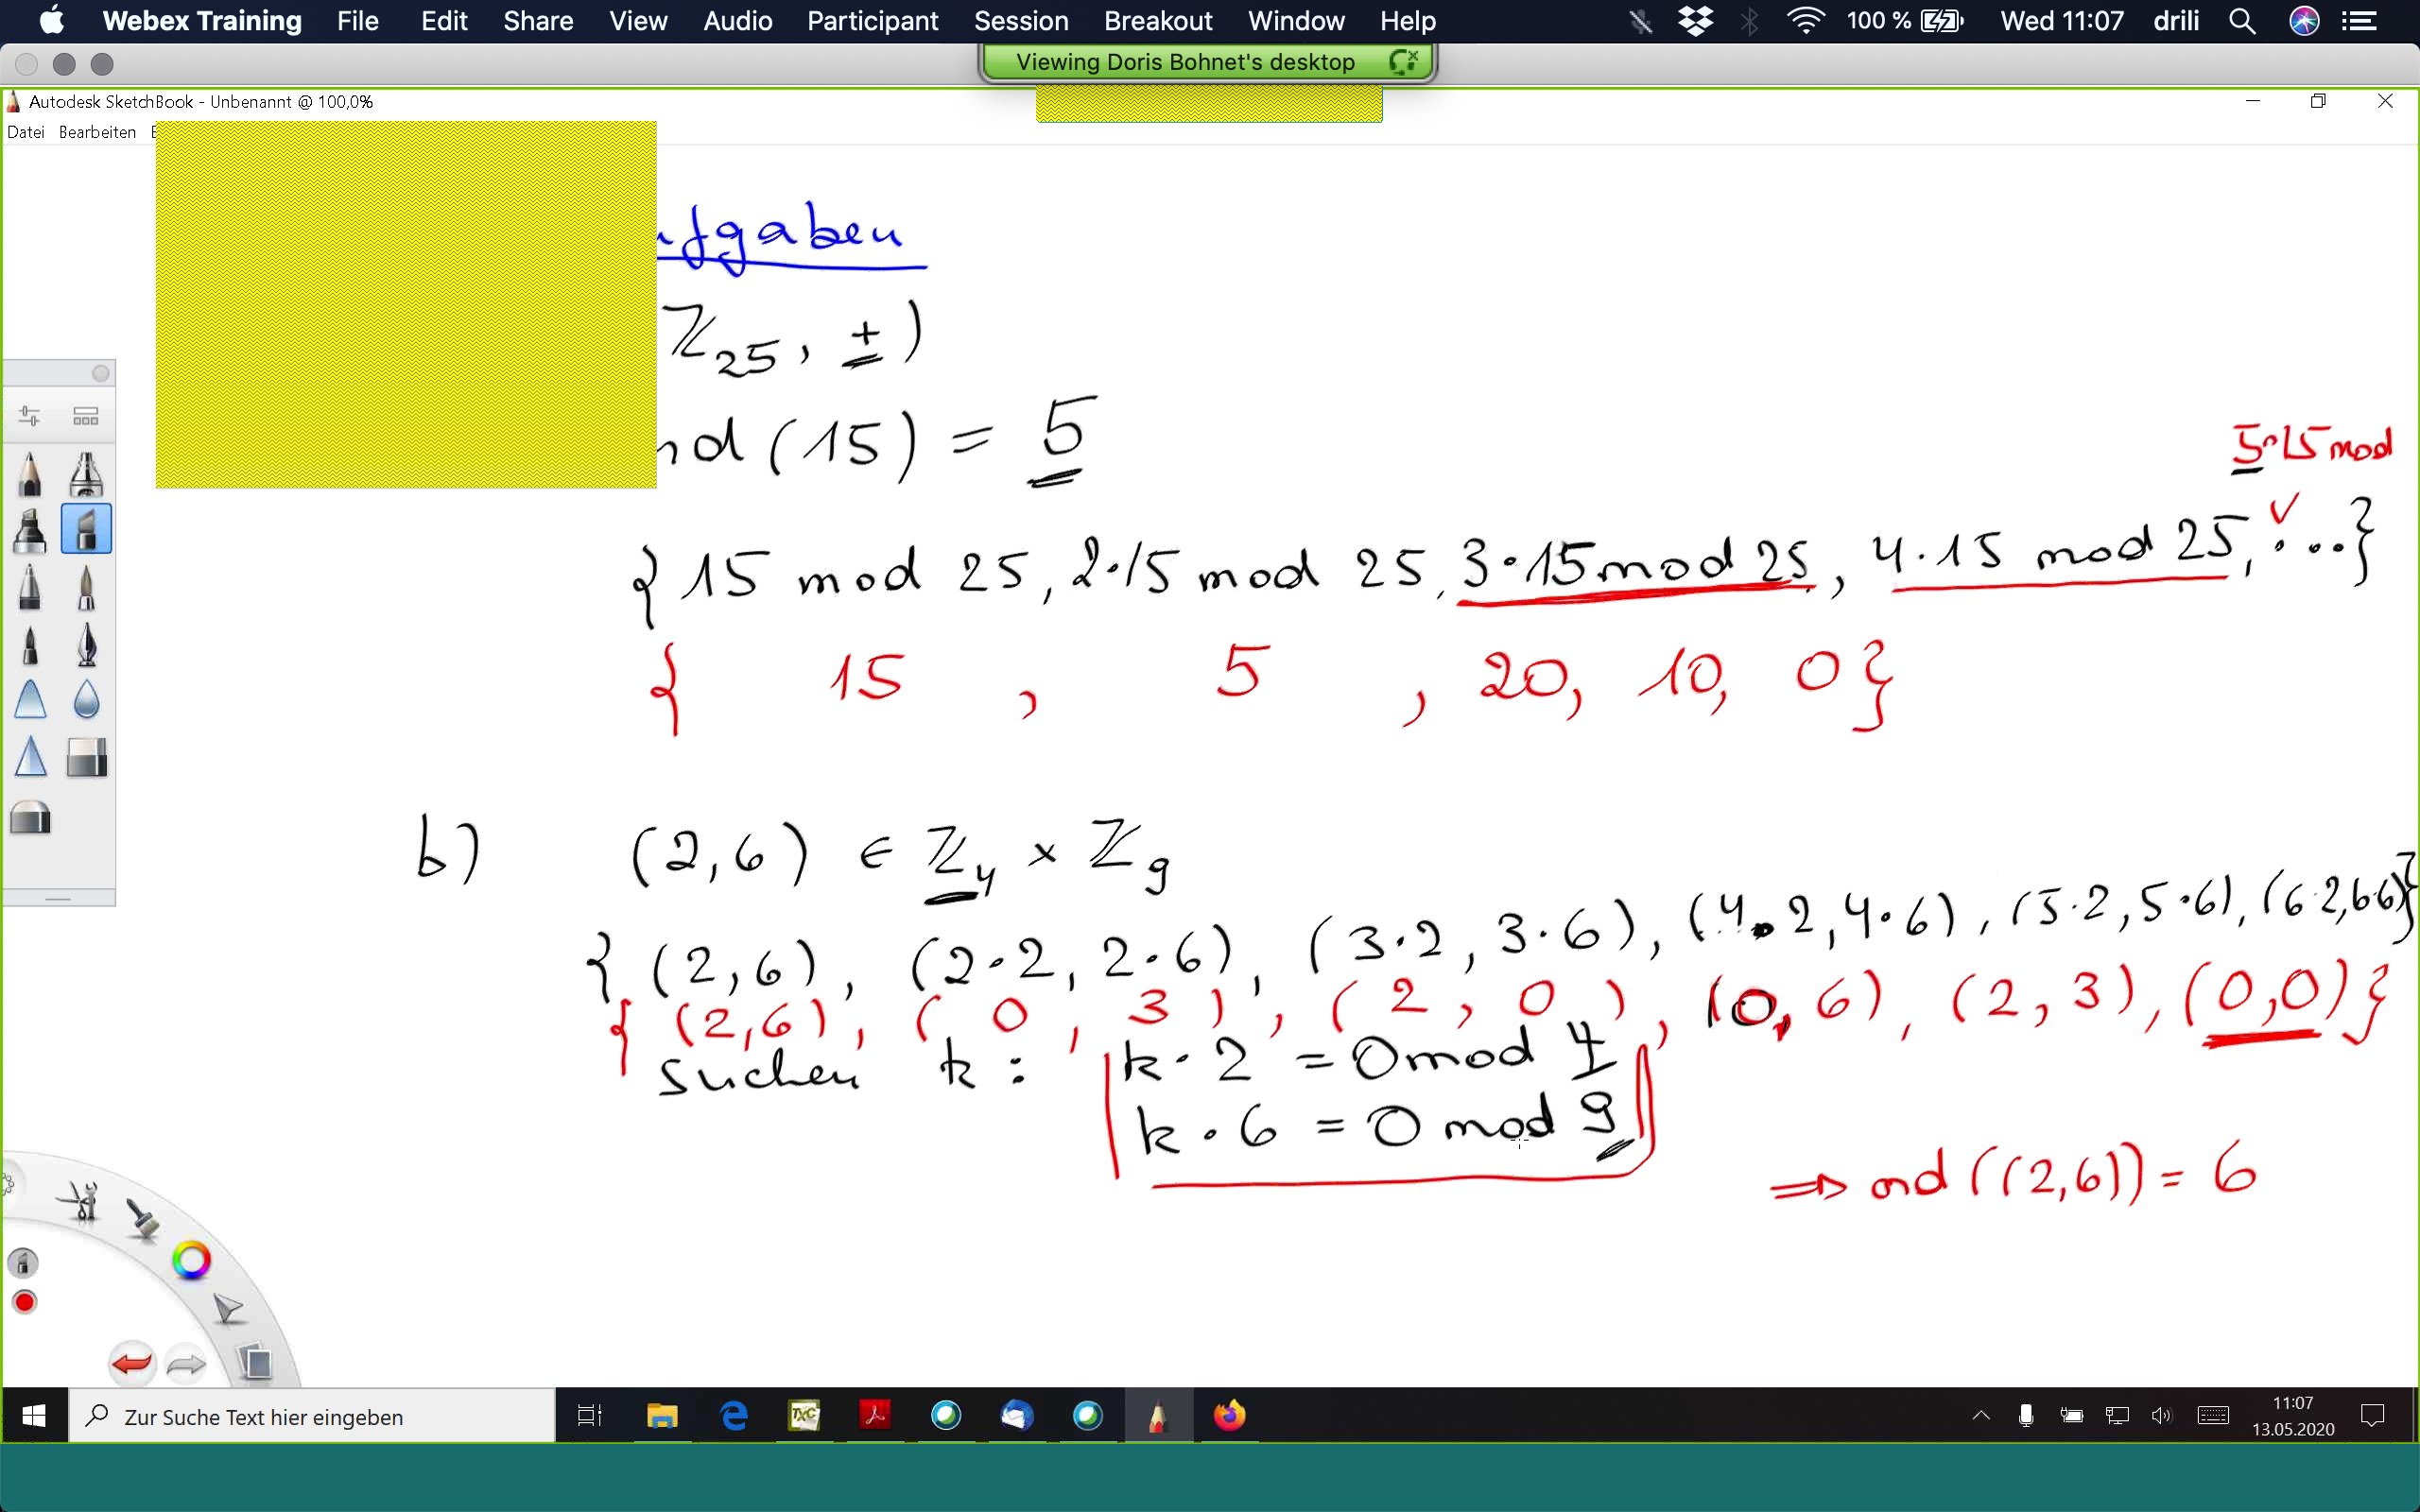 Webex Training File Edit Share View Audio Participant Session Breakout Window Help 100 % Wed 11:07 drili
Viewing Doris Bohnet's desktop
Autodesk SketchBook - Unbenannt @ 100,0%
Datei Bearbeiten
ufgaben
ℤ₂₅, +)
nd (15) = 5
5·15 mod
{ 15 mod 25, 2·15 mod 25, 3·15 mod 25, 4·15 mod 25, ...}
{ 15, 5, 20, 10, 0 }
b) (2,6) ∈ ℤ₄ × ℤ₉
{ (2,6), (2·2, 2·6), (3·2, 3·6), (4·2, 4·6), (5·2, 5·6), (6·2, 6·6)}
{ (2,6), (0, 3), (2, 0), (0, 6), (2, 3), (0,0) }
suchen k : k·2 = 0 mod 4
k·6 = 0 mod 9
⇒ ord ((2,6)) = 6
Zur Suche Text hier eingeben
TXC
11:07
13.05.2020